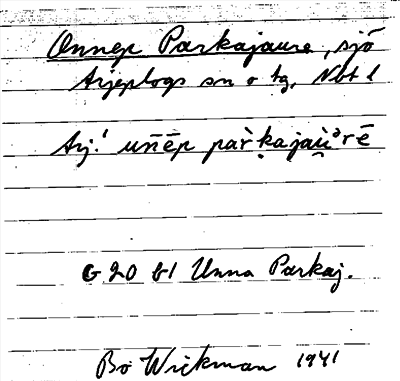 Onnep Parkajaure, sjö
Arjeplogs sn o tg, Nbt l
Arj.! un̄ēp par̀ḳajau̯ᵊrē
G 20 bl Unna Parkaj.
Bo Wickman 1941